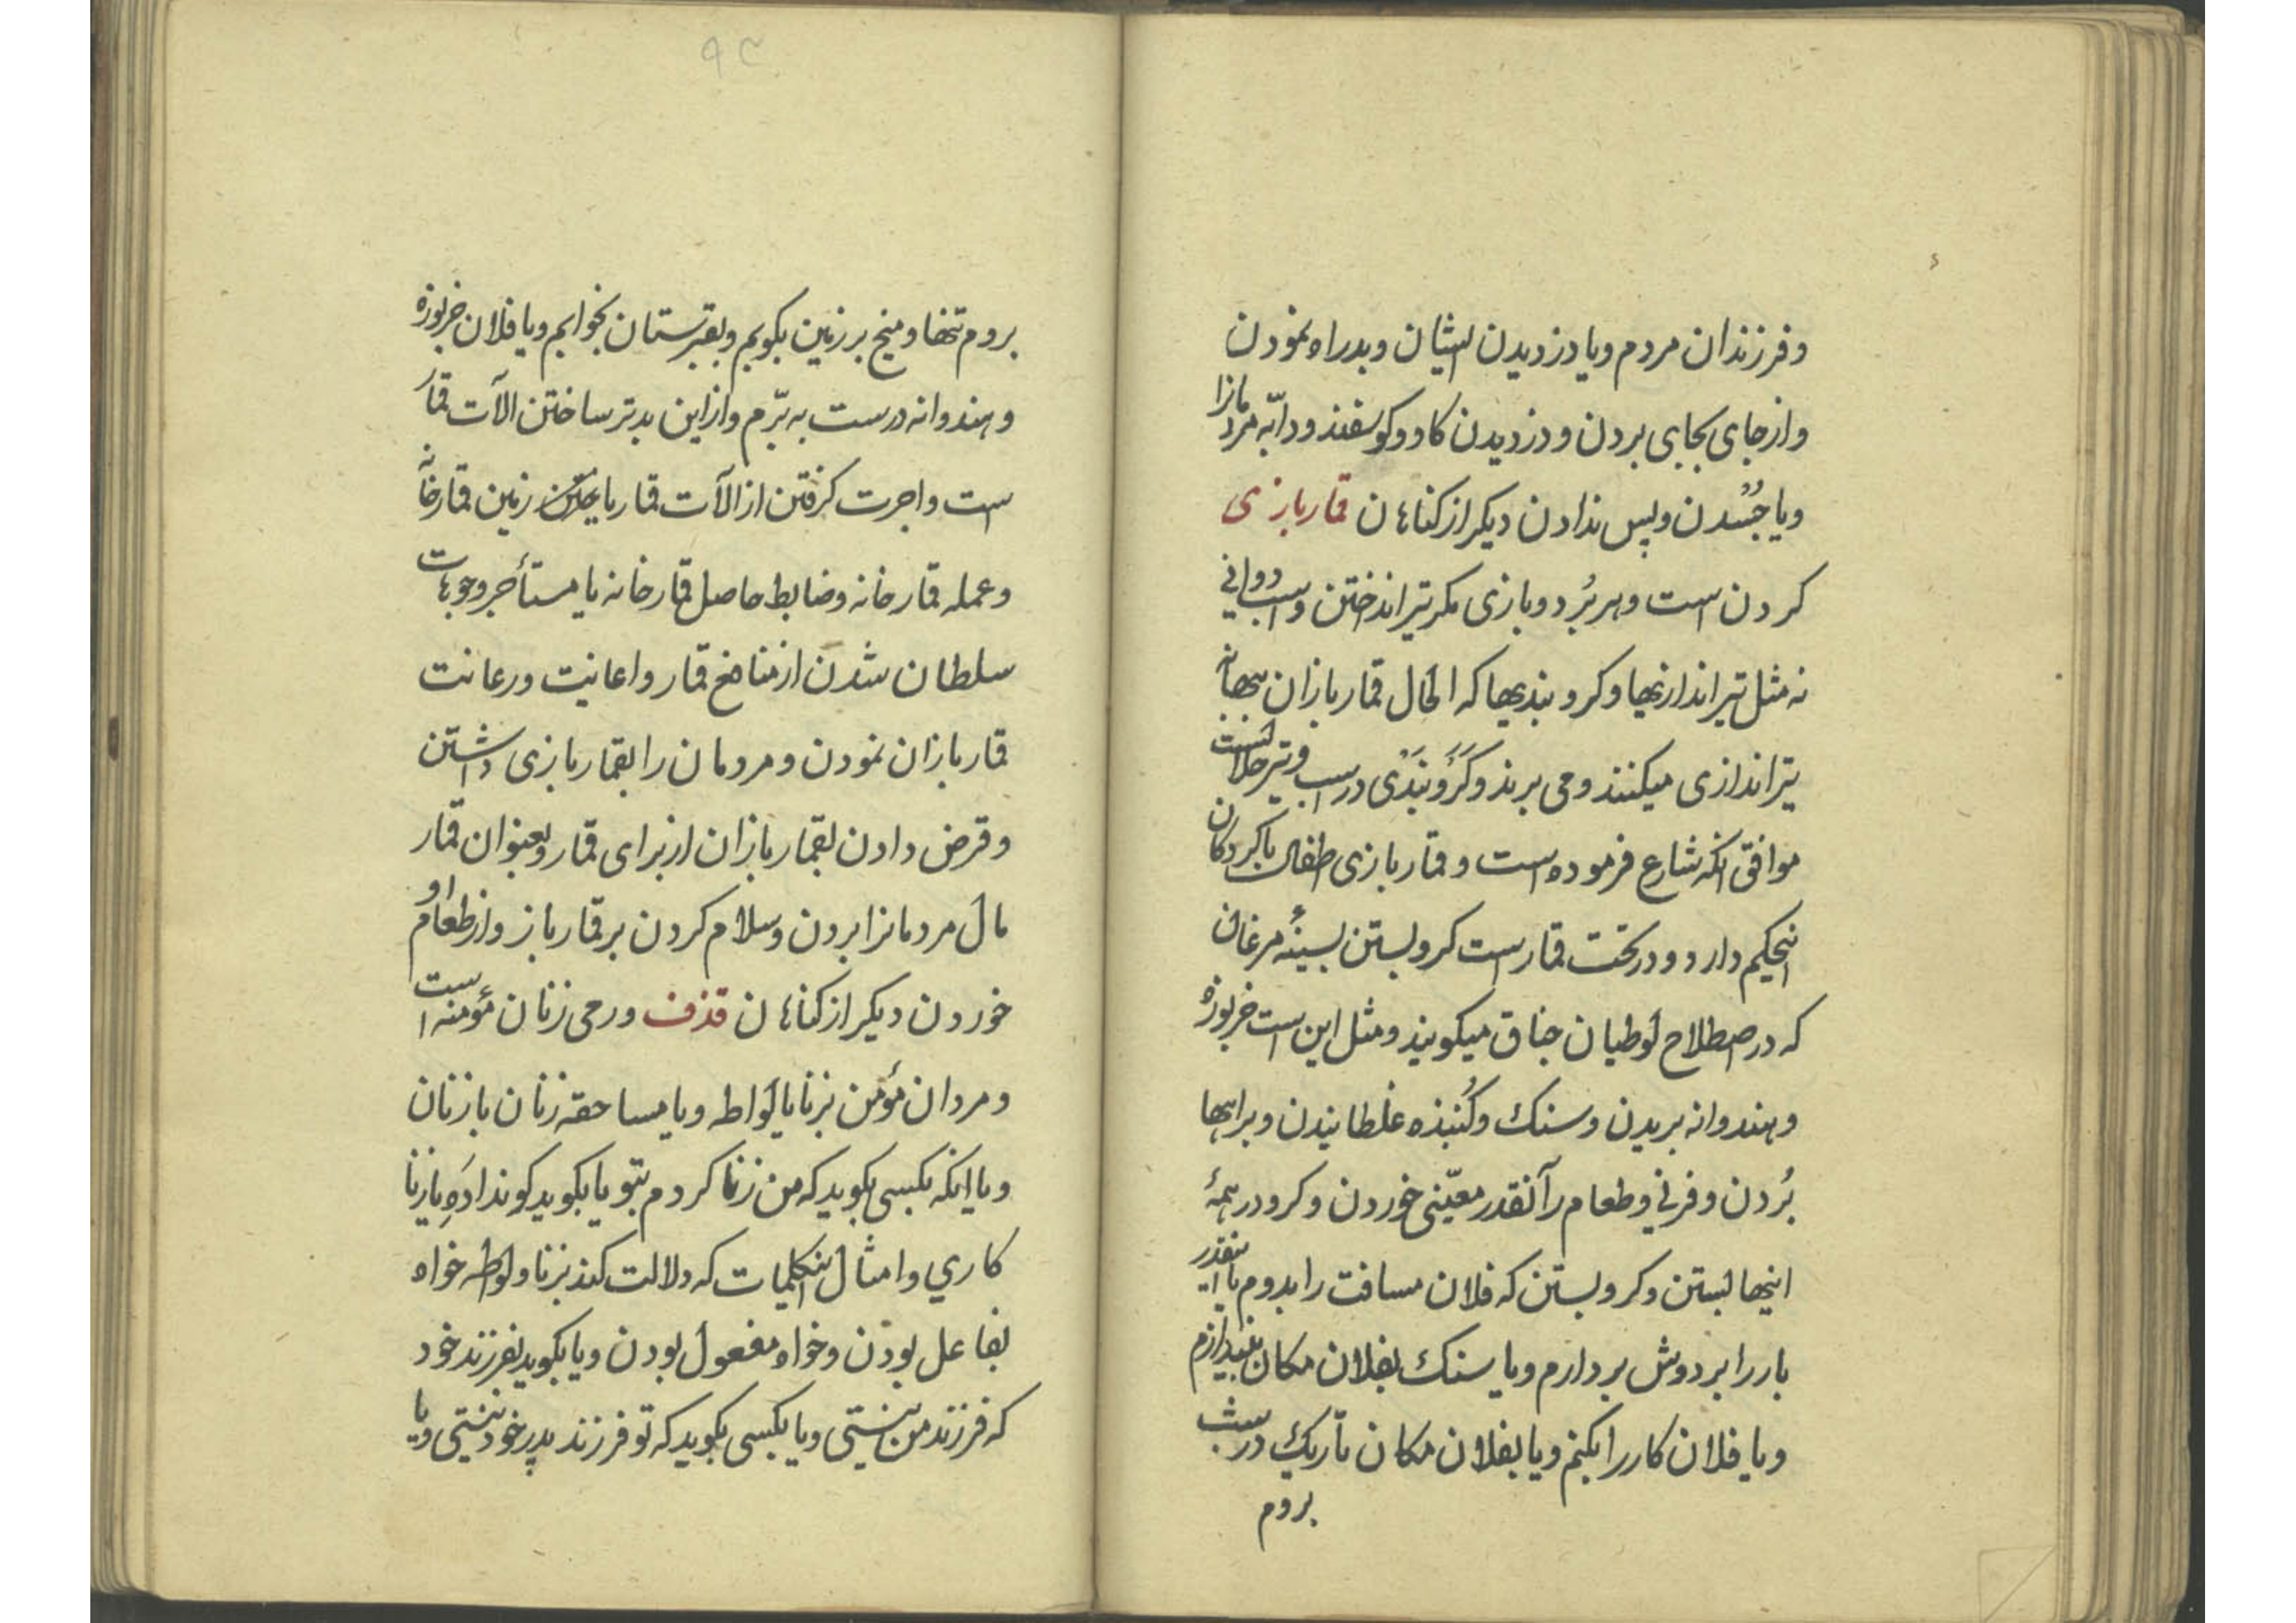 و فرزندان مردم و یا دزدیدن ایشان و بدراه نمودن
و از جای بجایی بردن و دزدیدن کاو و کوسفند و دابّه مردمانرا
و یا جُستدن و پس ندادن دیکر از کناهان قمار بازی
کردن است و هر بُرد و بازی مکر تیر انداختن و اسب دوانی
نه مثل تیر اندازیها و کرو بندیها که الحال قمار بازان ببهانه
تیراندازی میکنند و می برند و کَرَو بَنَدی در اسب و تیر حلالست
موافق آنکه شارع فرموده است و قمار بازی طفلان با کردکان
اینحکم دارد و در تحت قمار است کرو بستن بسینهٔ مرغان
که در اصطلاح لوطیان جناق میکویند و مثل این است خربوزه
و هندوانه بریدن و سنک و کُنبذه غلطانیدن و براهها
بُردن و فرنی و طعام را آنقدر معیّنی خوردن و کرو در همهٔ
اینها بستن و کرو بستن که فلان مسافت را بدوم یا اینقدر
بار را بر دوش بردارم و یا سنک بفلان مکان بیندازم
و یا فلان کار را بکنم و یا بفلان مکان تاریک در شب
بروم
۹۳
بروم تنها و میخ بر زمین بکوبم و بقبرستان بخوابم و یا فلان خربوزه
و هندوانه درست به برّم و از این بدتر ساختن الآت قمار
است و اجرت کرفتن از الآت قمار یا زمین قمارخانه
و عمله قمار خانه و ضابط حاصل قمار خانه یا مستأجر وجوهات
سلطان شدن از منافع قمار و اعانیت و رعانت
قمار بازان نمودن و مردمان را بقمار بازی داشتن
و قرض دادن بقمار بازان از برای قمار و بعنوان قمار
مال مردمانرا بردن و سلام کردن بر قمار باز و از طعام او
خوردن دیکر از کناهان قذف و رمی زنان مؤمنه است
و مردان مؤمن بزنا یا لواطه و یا مساحقه زنان با زنان
و یا اینکه بکسی بکوید که من زنا کردم بتو یا بکوید کونداده یا زنا
کاري و امثال اینکلمات که دلالت کند بزنا و لواطه خواه
بفاعل بودن و خواه مفعول بودن و یا بکوید بفرزند خود
که فرزند من نیستی و یا بکسی بکوید که تو فرزند پدر خود نیستی و یا